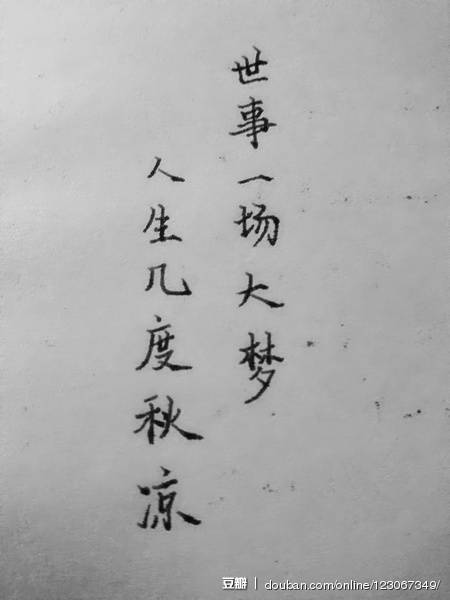 世事一场大梦
人生几度秋凉
豆瓣 | douban.com/online/123067349/